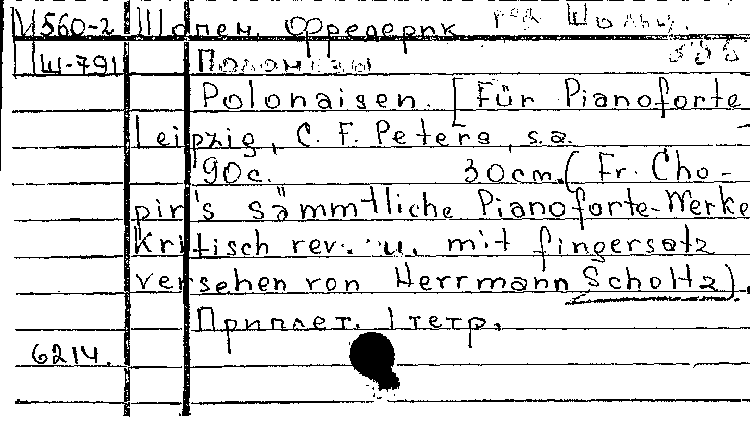 М560-2 Шопен, Фредерик ред Шольц.
Ш-791 Полонезы
Polonaisen. [Für Pianoforte
Leipzig, C. F. Peters, s.a.
90c. 30cm. (Fr. Cho-
pin's sämmtliche Pianoforte-Werke
kritisch rev. u. mit fingersatz
versehen von Herrmann Scholtz).
Приплет. 1 тетр.
6214.